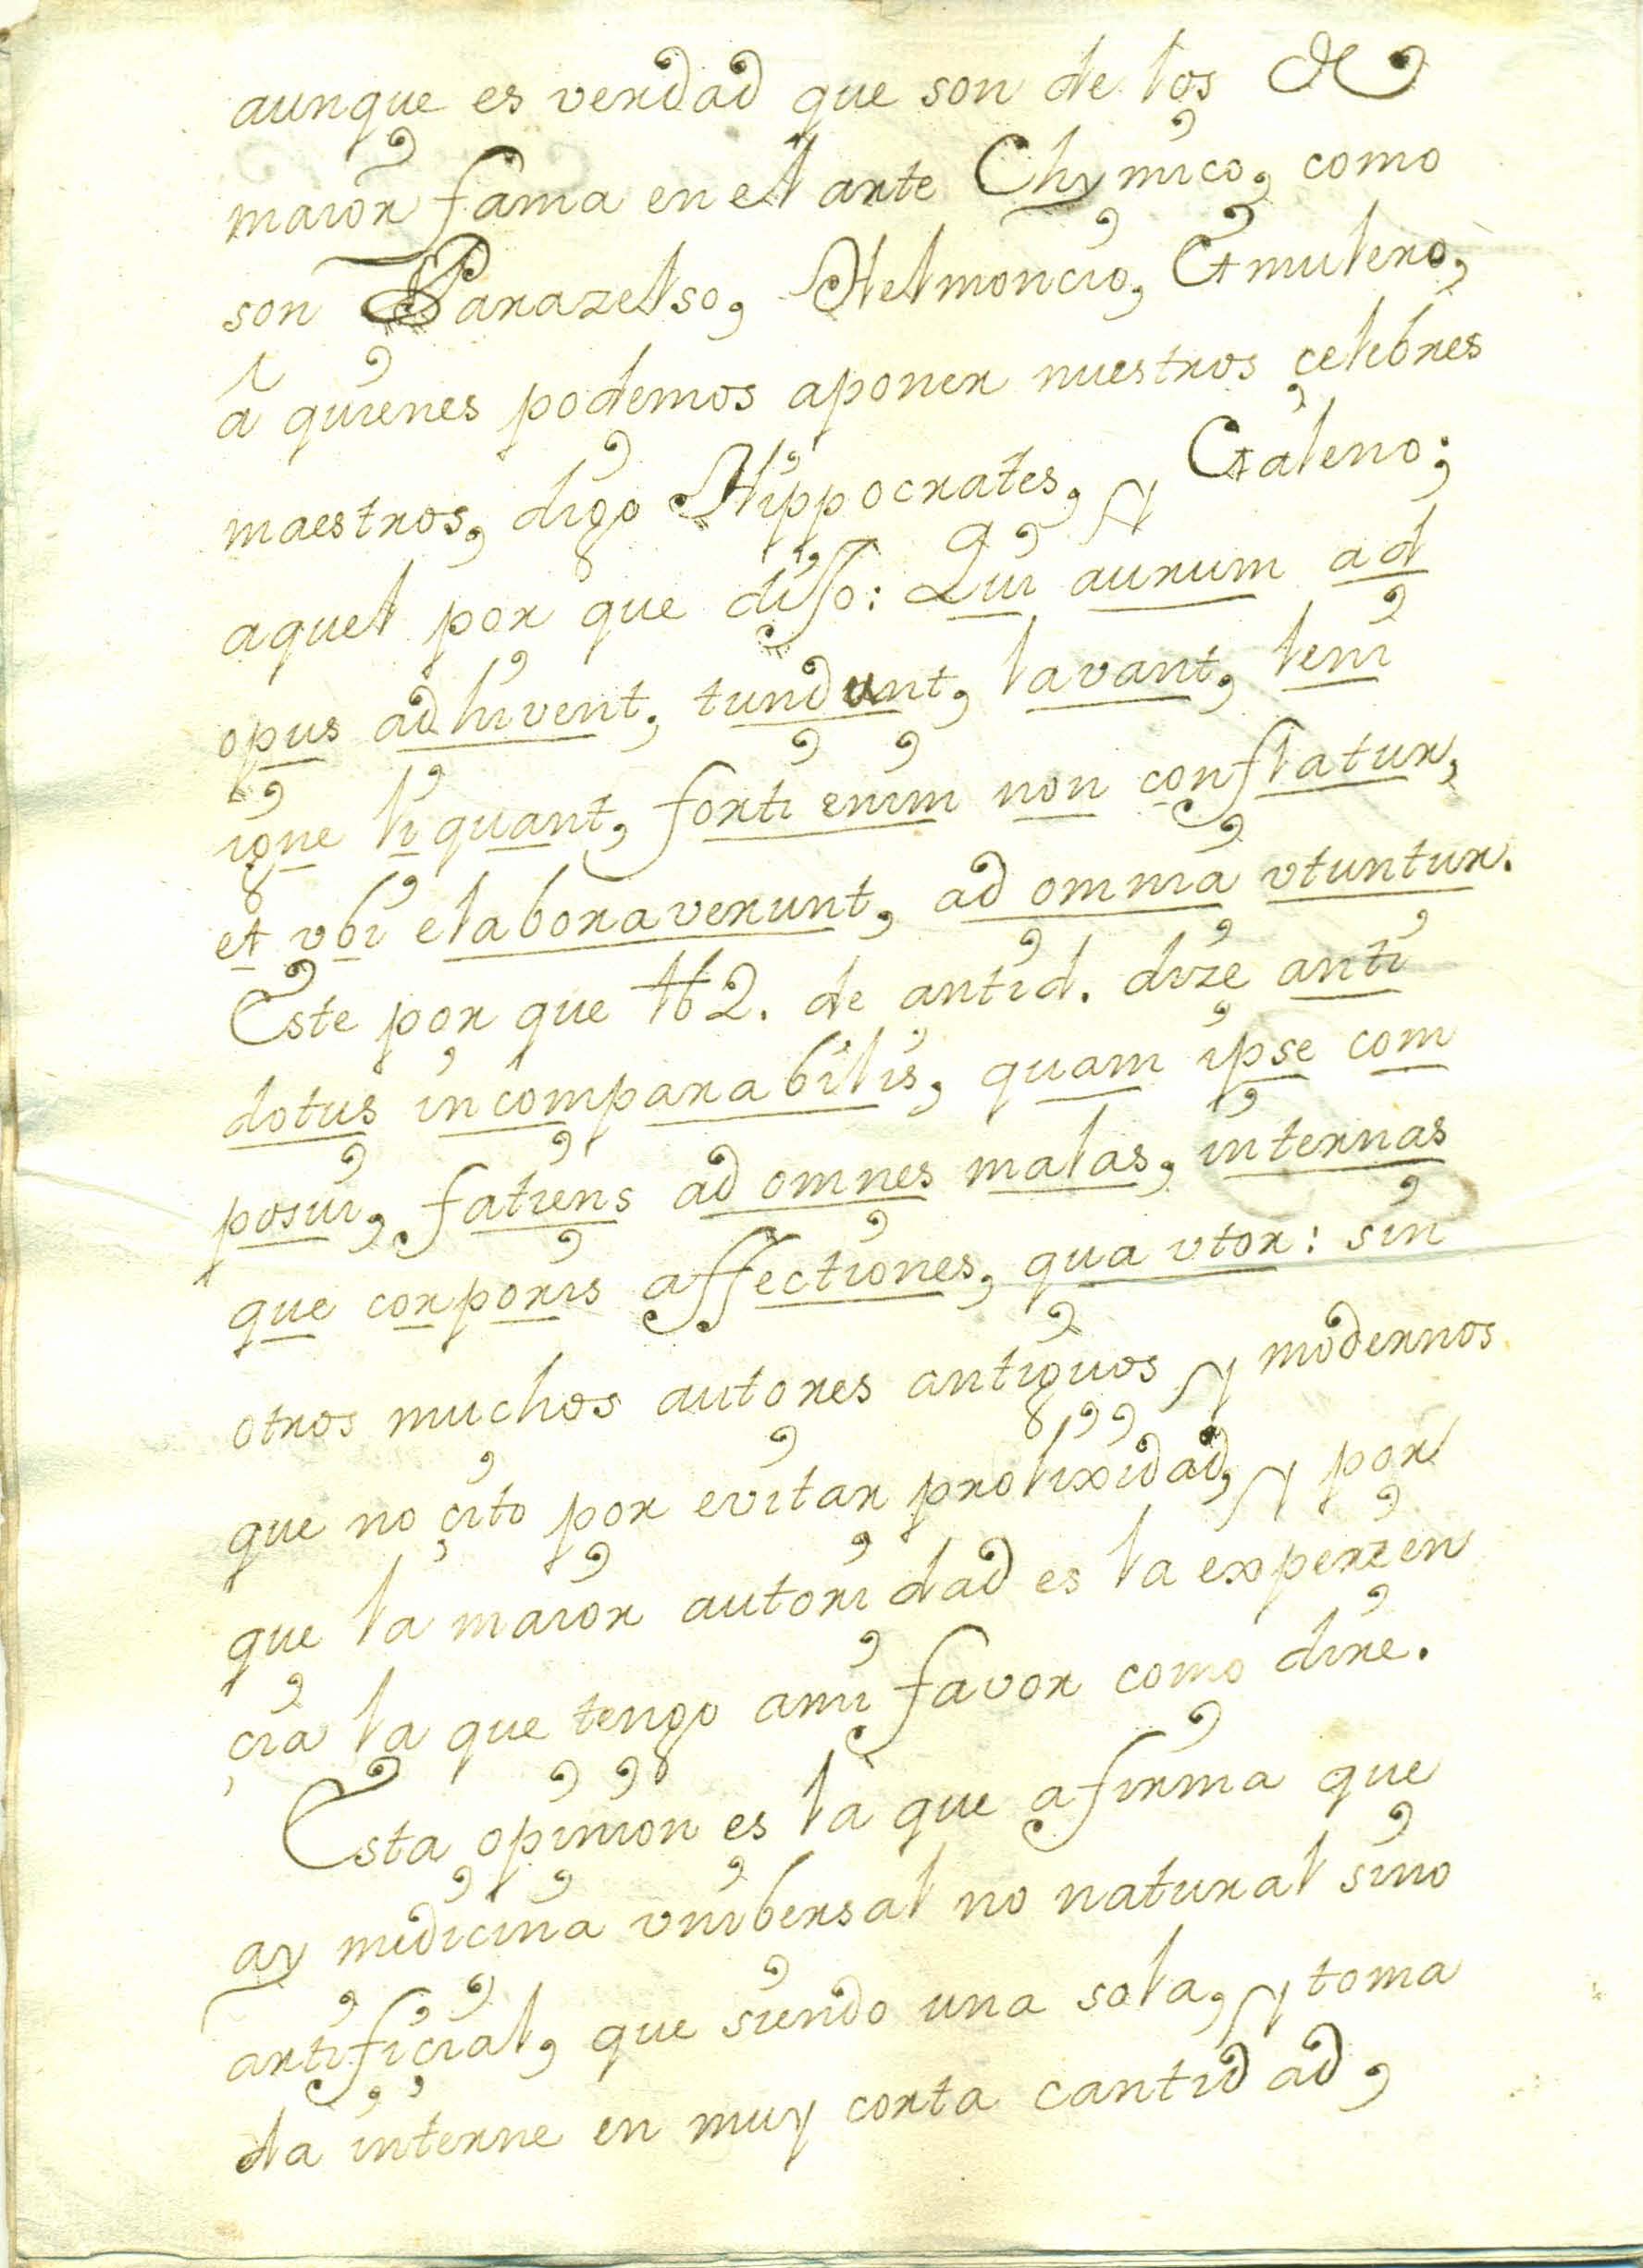 aunque es verdad que son de los de
maior fama en el arte Chymico, como
son Parazelso, Helmoncio, Etmulero,
â quienes podemos aponer nuestros çelebres
maestros, digo Hippocrates, y Galeno;
aquel por que dijo: Qui aurum ad
opus adhivent, tundunt, lavant, leni
igne liquant, forti enim non conflatur,
et vbi elaboraverunt, ad omnia vtuntur.
Este por que lb 2. de antid. dize anti
dotus incomparabilis, quam ipse com
posui, fatiens ad omnes malas, internas
que corporis affectiones, qua vtor: sin
otros muchos autores antiguos y modernos
que no çito por evitar prolixidad, y por
que la maior autoridad es la experien
çia la que tengo ami favor como dire.
Esta opinion es la que afirma que
ay midicina vnibersal no natural sino
artifiçial, que siendo una sola, y toma
da interne en muy corta cantidad,